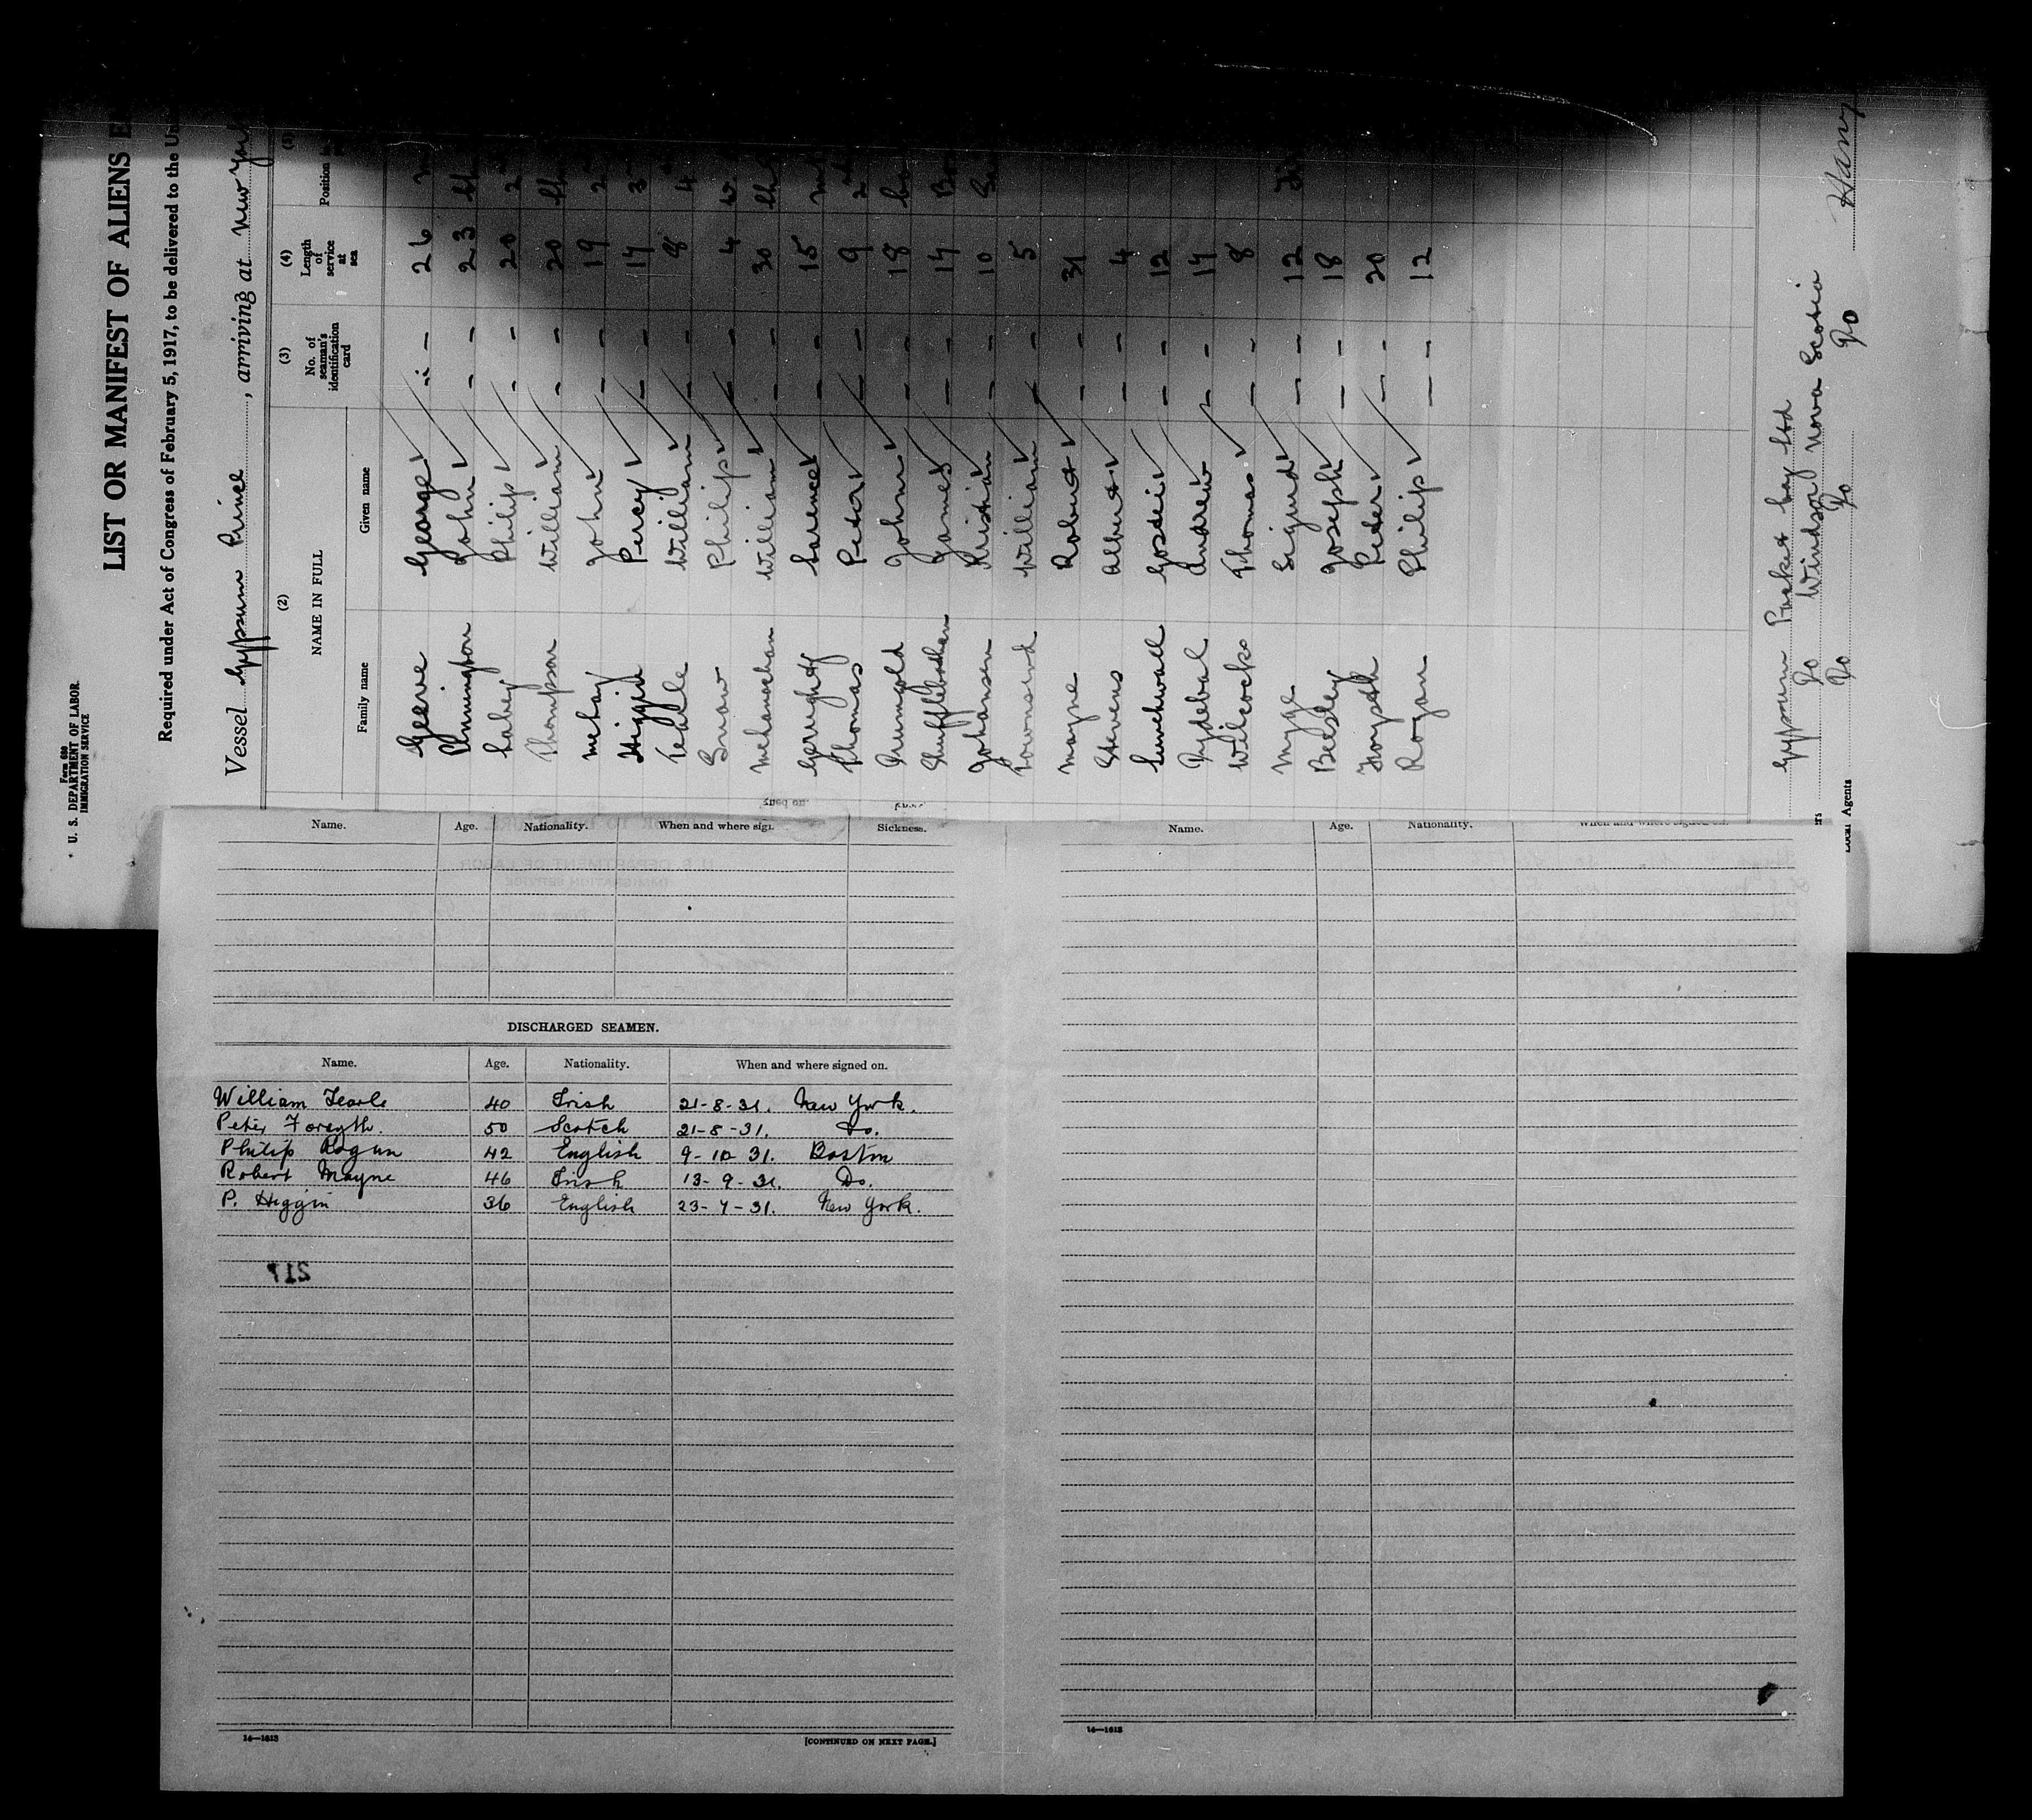 Form 680
U. S. DEPARTMENT OF LABOR
IMMIGRATION SERVICE
LIST OR MANIFEST OF ALIENS E
Required under Act of Congress of February 5, 1917, to be delivered to the U
Vessel Gypsum Prince, arriving at New York
(2) (3) (4) (5)
NAME IN FULL No. of seaman's identification card Length of service at sea Position
Family name Given name
George — — 26
Pennington John — — 23
Lahey Philip — — 20
Thompson William — — 20
McHay John — — 19
Higgin Percy — — 17
Tearle William — — 8
Snow Philip — — 4
McLanachan William — — 30
Gerughty Larence — — 15
Thomas Peter — — 9
Grumgold John — — 18
Shufflebotham James — — 17
Johansen Kristian — — 10
Townsend William — — 5
Mayne Robert — — 31
Stevens Albert — — 4
Gostei — — 12
Rydebal Andrew — — 17
Wilcocks Thomas — — 8
Mygge Sigurd — — 12
Beesley Joseph — — 18
Forysth Peter — — 20
Rogan Philip — — 12
Gypsum Packet Coy Ltd
Do Windsor Nova Scotia
Local Agents Do Do Do Harry
Name. Age. Nationality. When and where sig Sickness.
DISCHARGED SEAMEN.
Name. Age. Nationality. When and where signed on.
William Tearle 40 Irish 21-8-31. New York.
Peter Forsyth. 50 Scotch 21-8-31. Do.
Philip Rogan 42 English 9-10 31. Boston
Robert Mayne 46 Irish 13-9-31. Do.
P. Higgin 36 English 23-7-31. New York.
16—1613 [CONTINUED ON NEXT PAGE.]
Name. Age. Nationality. When and where signed on.
16—1613